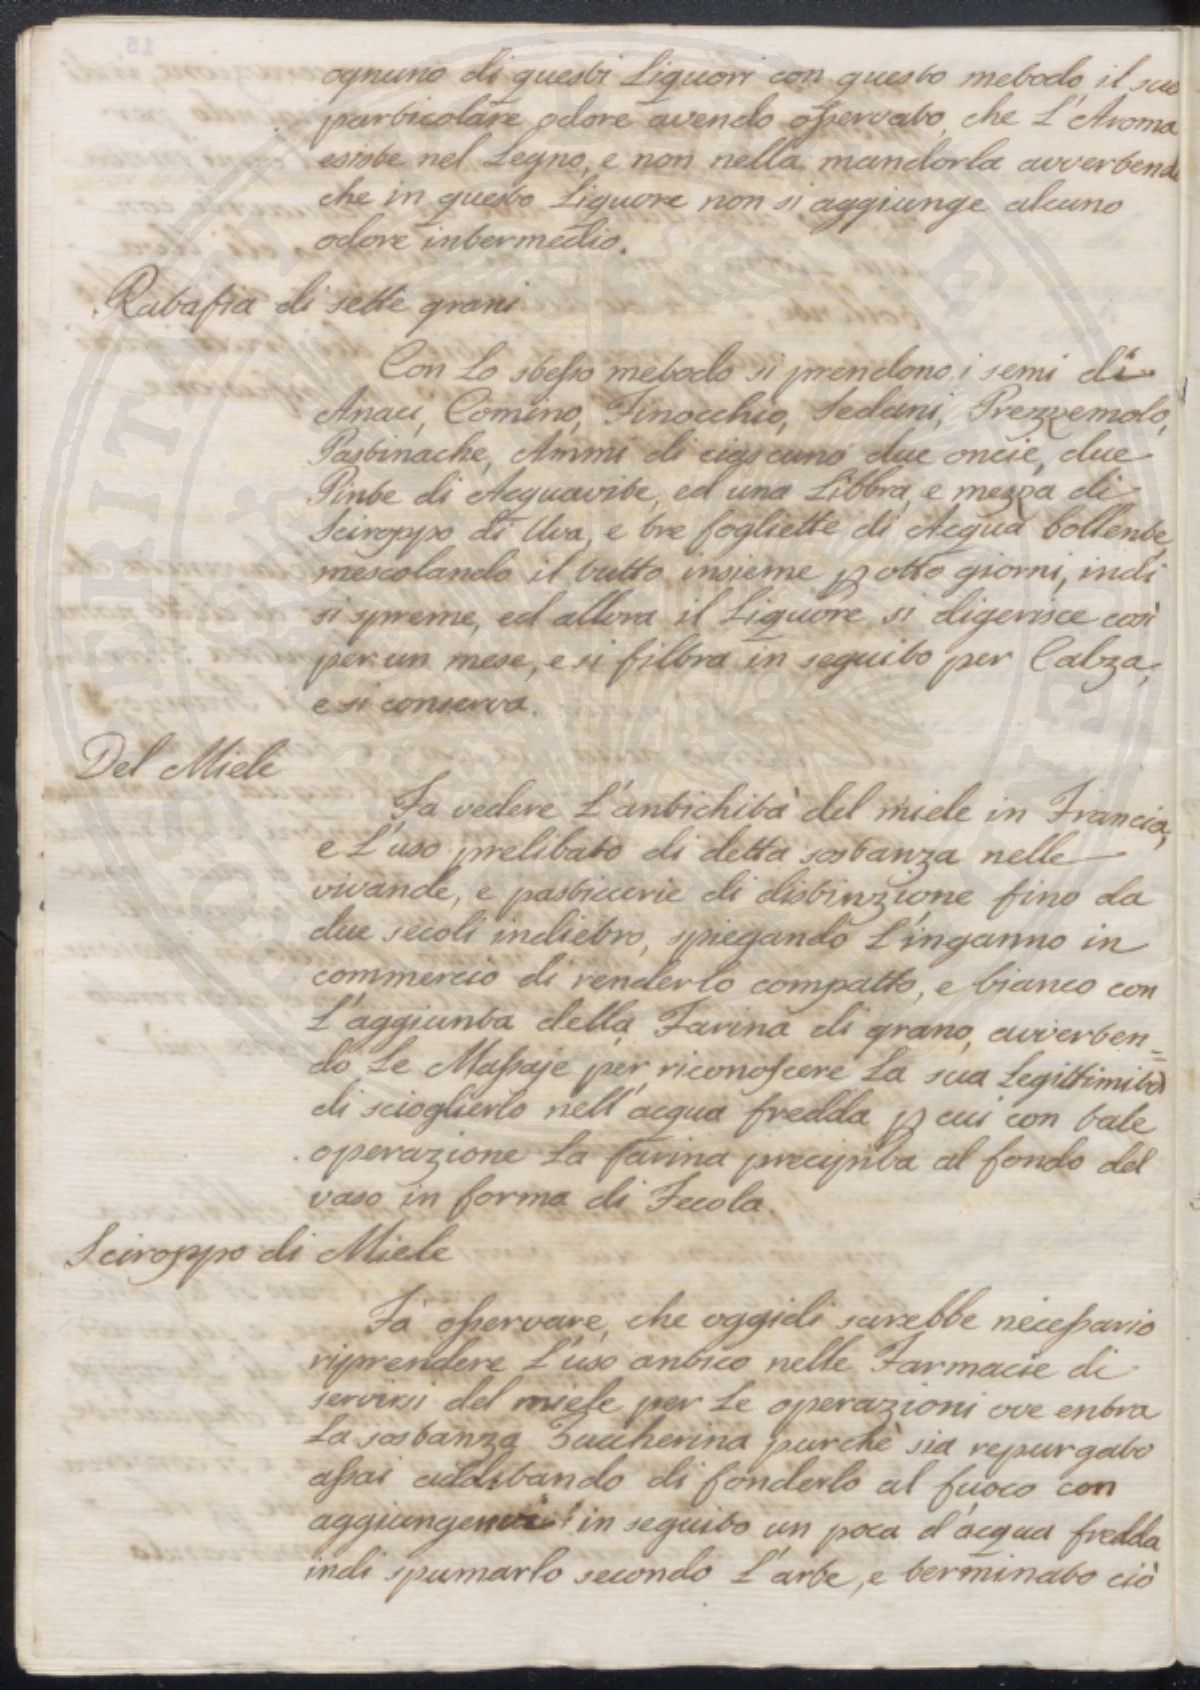 ognuno di questi Liquori con questo metodo il suo
particolare odore avendo osservato, che L'Aroma
esiste nel Legno, e non nella mandorla avvertendo
che in questo Liquore non si aggiunge alcuno
odore intermedio.
Ratafia di sette grani
Con Lo stesso metodo si prendono i semi di
Anaci, Comino, Finocchio, Sedani, Prezzemolo,
Pastinache, Ammi di ciascuno due oncie, due
Pinte di Acquavite, ed una Libbra, e mezza di
Sciroppo di Uva, e tre fogliette di Acqua bollente
mescolando il tutto insieme p otto giorni, indi
si spreme, ed allora il Liquore si digerisce così
per un mese, e si filtra in seguito per Calza,
e si conserva.
Del Miele
Fa vedere L'antichità del miele in Francia,
e L'uso prelibato di detta sostanza nelle
vivande, e pasticcerie di distinzione fino da
due secoli indietro, spiegando L'inganno in
commercio di renderlo compatto, e bianco con
L'aggiunta della Farina di grano, avverten=
do Le Massaje per riconoscere La sua Legittimità
di scioglierlo nell'acqua fredda p cui con tale
operazione La farina precipita al fondo del
vaso in forma di Fecola.
Sciroppo di Miele
Fà osservare, che oggidi sarebbe necessario
riprendere L'uso antico nelle Farmacie di
servirsi del miele per Le operazioni ove entra
La sostanza Zuccherina purchè sia repurgato
assai additando di fonderlo al fuoco con
aggiungervi in seguito un poca d'acqua fredda
indi spumarlo secondo L'arte, e terminato ciò